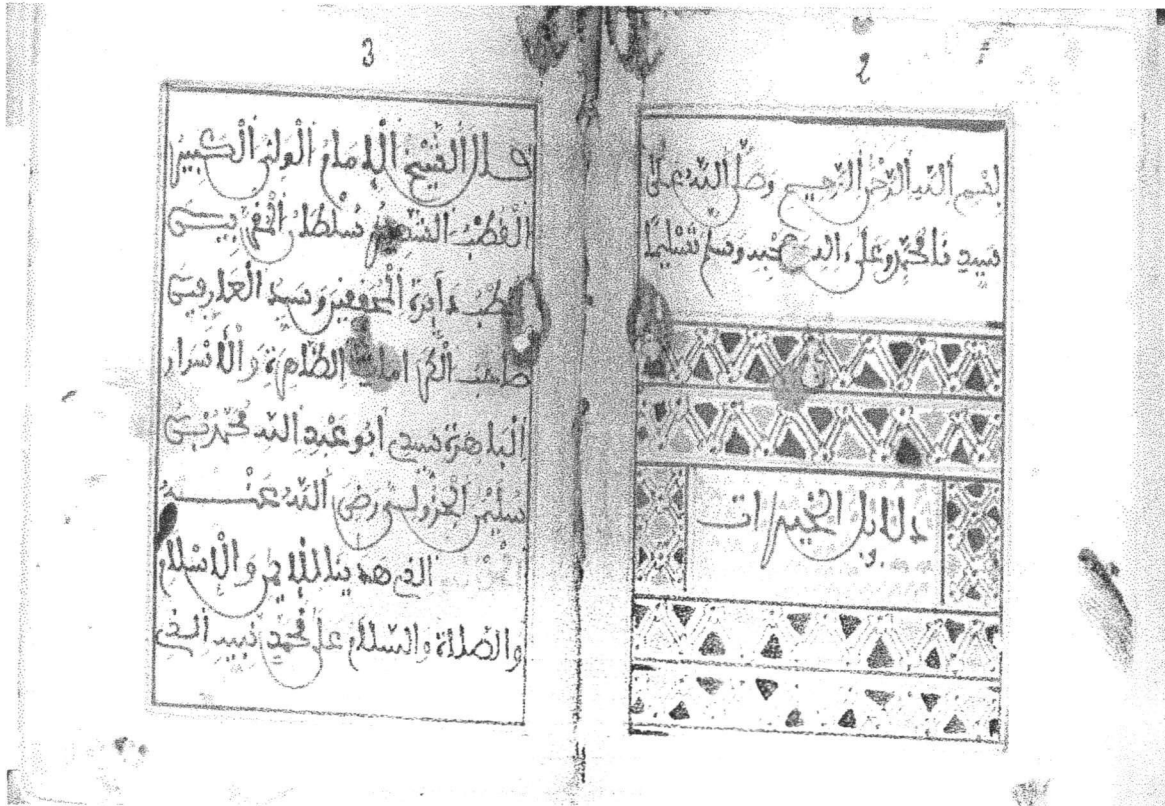 2
بسم الله الرحمن الرحيم وصلى الله على
سيدنا محمد وعلى ءاله وصحبه وسلم تسليما
دلايل الخيرات
3
قال الشيخ الإمام الولي الكبير
القطب الشهير سلطان المقربين
قطب دايرة المحققين وسيد العارفين
صاحب الكرامات الظاهرة والأسرار
الباهرة سيدي أبو عبد الله محمد بن
سليمن الجزولي رضي الله عنه
الذي هدينا للإيمن والإسلام
والصلاة والسلام على محمد نبيه الذي